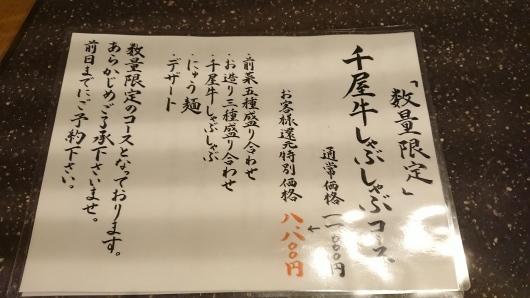 「数量限定」
千屋牛しゃぶしゃぶコース
通常価格 一一、〇〇〇円
お客様還元特別価格 八、八〇〇円
・前菜五種盛り合わせ
・お造り三種盛り合わせ
・千屋牛しゃぶしゃぶ
・にゅう麺
・デザート
数量限定のコースとなっております。
あらかじめご了承下さいませ。
前日までにご予約下さい。